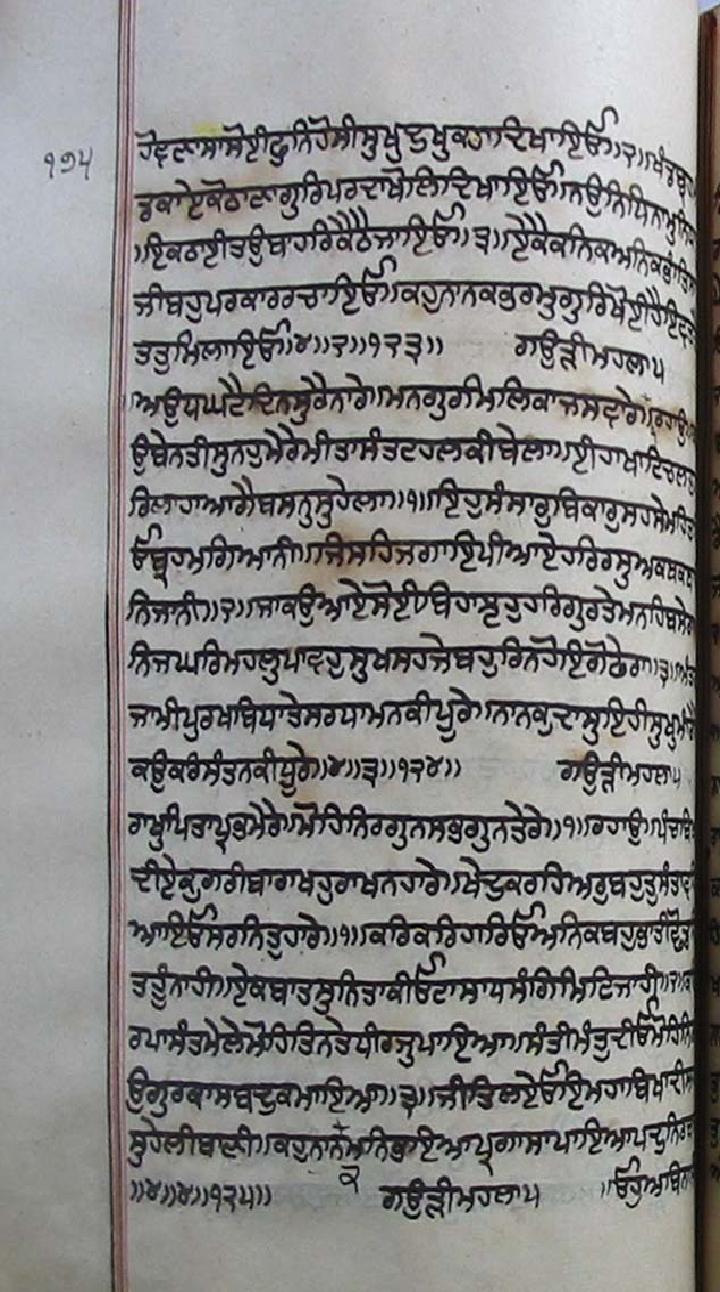 ੧੭੫
ਹੋਵਣਾਸਾਸੋਈਫੁਨਿਹੋਸੀਸੁਖੁਦੁਖੁਕਹਾਦਿਖਾਇਓ॥੨॥ਖੰਡਬ੍ਰਹ
ਡਕਾਏਕੋਠਾਣਾਗੁਰਿਪਰਦਾਖੋਲਿਦਿਖਾਇਓ॥ਨਉਨਿਧਿਨਾਮੁਨਿ
॥ਇਕਠਾਈਤਉਬਾਹਰਿਕੈਠੈਜਾਇਓ॥੩॥ਏਕੈਕਨਿਕਅਨਿਕਭਾਤਿਸਾ
ਜੀਬਹੁਪਰਕਾਰਰਚਾਇਓ॥ਕਹੁਨਾਨਕਭਰਮੁਗੁਰਿਖੋਈਹੈਇਵ
ਤਤੁਮਿਲਾਇਓ॥੪॥੨॥੧੨੩॥ ਗਉੜੀਮਹਲਾ੫
ਅਉਧਘਟੈਦਿਨਸੁਰੈਨਾਰੇ॥ਮਨਗੁਰਮਿਲਿਕਾਜਸਵਾਰੇ॥੧॥ਰਹਾਉ॥
ਉਬੇਨਤੀਸੁਨਹੁਮੇਰੇਮੀਤਾਸੰਤਟਹਲਕੀਬੇਲਾ॥ਈਹਾਖਾਟਿਚਲਹੁ
ਰਿਲਾਹਾਆਗੈਬਸਨੁਸੁਹੇਲਾ॥੧॥ਇਹੁਸੰਸਾਰੁਬਿਕਾਰੁਸਹਸੇਮਹਿਤ
ਓਬ੍ਰਹਮਗਿਆਨੀ॥ਜਿਸਹਿਜਗਾਇਪੀਆਏਹਰਿਰਸੁਅਕਥਕਥਾ
ਨਿਜਾਨੀ॥੨॥ਜਾਕਉਆਏਸੋਈਬਿਹਾਝਹੁਹਰਿਗੁਰਤੇਮਨਹਿਬਸੇਰਾ
ਨਿਜਘਰਿਮਹਲੁਪਾਵਹੁਸੁਖਸਹਜੇਬਹੁਰਿਨਹੋਇਗੋਫੇਰਾ॥੩॥ਅੰਤਰ
ਜਾਮੀਪੁਰਖਬਿਧਾਤੇਸਰਧਾਮਨਕੀਪੂਰੇ॥ਨਾਨਕੁਦਾਸੁਇਹੀਸੁਖੁਮਾਗੈ
ਕਉਕਰਿਸੰਤਨਕੀਧੂਰੇ॥੪॥੩॥੧੨੪॥ ਗਉੜੀਮਹਲਾ੫
ਰਾਖੁਪਿਤਾਪ੍ਰਭਮੇਰੇ॥ਮੋਹਿਨਿਰਗੁਨਸਭਗੁਨਤੇਰੇ॥੧॥ਰਹਾਉ॥ਪੰਚਬਿ
ਦੀਏਕੁਗਰੀਬਾਰਾਖਹੁਰਾਖਨਹਾਰੇ॥ਖੇਦੁਕਰਹਿਅਰੁਬਹੁਤੁਸੰਤਾਵ
ਆਇਓਸਰਨਿਤੁਹਾਰੇ॥੧॥ਕਰਿਕਰਿਹਾਰਿਓਅਨਿਕਬਹੁਭਾਤੀਛੋਡ
ਤਹੂੰਨਾਹੀ॥ਏਕਬਾਤਸੁਨਿਤਾਕੀਓਟਾਸਾਧਸੰਗਿਮਿਟਿਜਾਹੀ॥੨॥ਕ
ਰਪਾਸੰਤਮੇਲੇਮੋਹਿਤਿਨਤੇਧੀਰਜੁਪਾਇਆ॥ਸੰਤੀਮੰਤੁਦੀਓਮੋਹਿਨਿ
ਉਗੁਰਕਾਸਬਦੁਕਮਾਇਆ॥੩॥ਜੀਤਿਲਏਓਇਮਹਾਬਿਖਾਦੀਸ
ਸੁਹੇਲੀਬਾਣੀ॥ਕਹੁਨਾਨਮਨਿਭਇਆਪ੍ਰਗਾਸਾਪਾਇਆਪਦੁਨਿਰ
ਕ
॥੪॥੪॥੧੨੫॥ ਗਉੜੀਮਹਲਾ੫ ॥ਓਹੁਅਬਿਨਾ